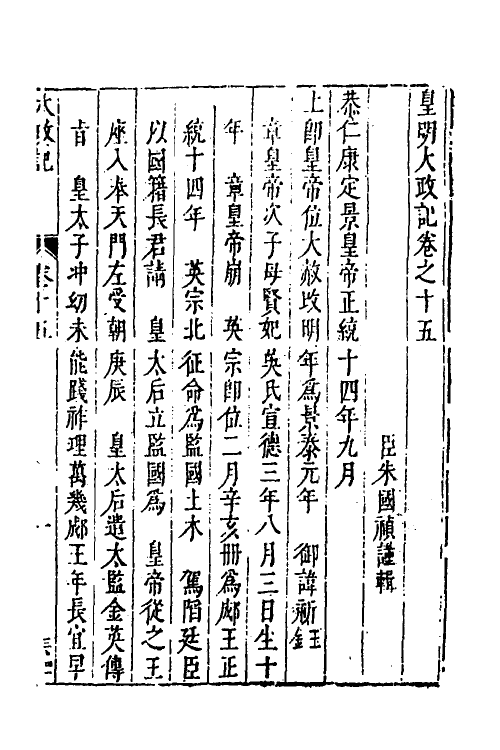 皇明大政記卷之十五
臣朱國禎謹輯
恭仁康定景皇帝正統十四年九月
上卽皇帝位大赦改明年爲景泰元年　御諱祁鈺
章皇帝次子母賢妃吳氏宣德三年八月三日生十
年　章皇帝崩　英宗卽位二月辛亥册爲郕王正
統十四年　英宗北征命爲監國土木　駕陷廷臣
以國籍長君請　皇太后立監國爲　皇帝從之王
座入奉天門左受朝庚辰　皇太后遣太監金英傳
旨　皇太子冲幼未能踐祚理萬幾郕王年長宜早
大政記　卷十五　一